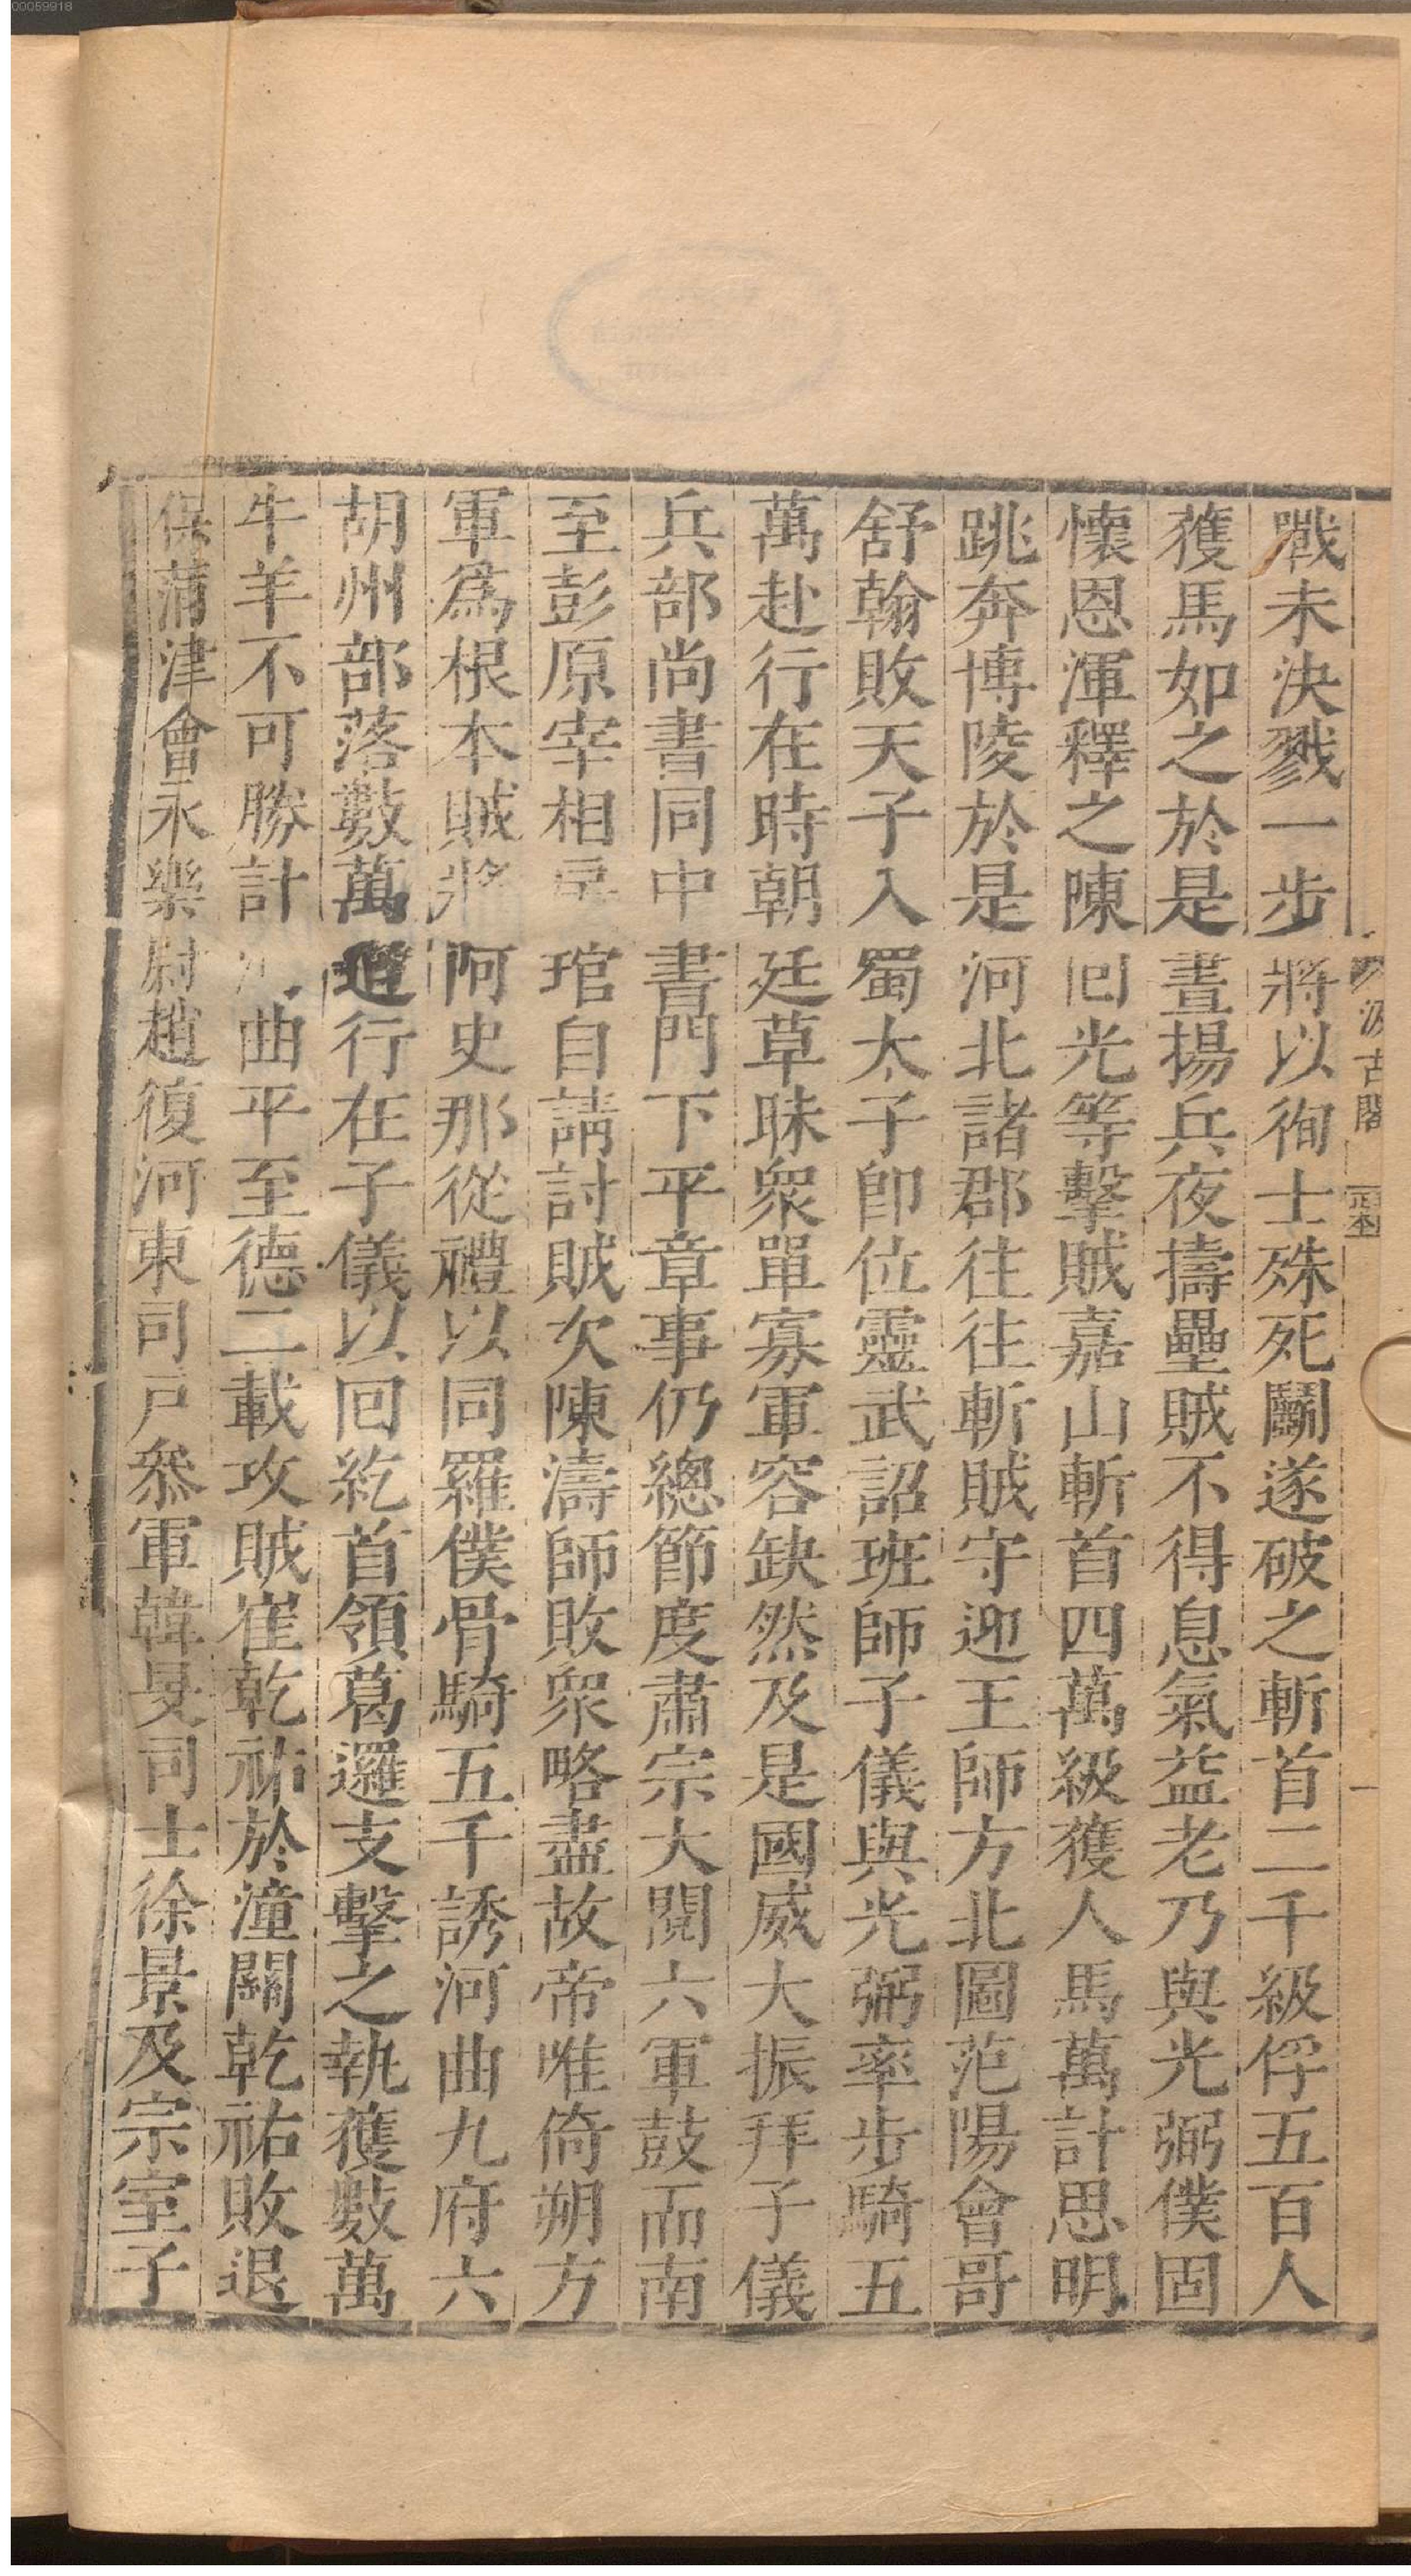 00059918
汲古閣
正本
戰未決戮一步將以徇士殊死鬭遂破之斬首二千級俘五百人
獲馬如之於是晝揚兵夜擣壘賊不得息氣益老乃與光弼僕固
懷恩渾釋之陳回光等擊賊嘉山斬首四萬級獲人馬萬計思明
跳奔博陵於是河北諸郡往往斬賊守迎王師方北圖范陽會哥
舒翰敗天子入蜀太子卽位靈武詔班師子儀與光弼率步騎五
萬赴行在時朝廷草昧衆單寡軍容缺然及是國威大振拜子儀
兵部尚書同中書門下平章事仍總節度肅宗大閱六軍鼓而南
至彭原宰相琯自請討賊次陳濤師敗衆略盡故帝唯倚朔方
軍爲根本賊將阿史那從禮以同羅僕骨騎五千誘河曲九府六
胡州部落數萬迫行在子儀以回紇首領葛邏支擊之執獲數萬
牛羊不可勝計河曲平至德二載攻賊崔乾祐於潼關乾祐敗退
保蒲津會永樂尉趙復河東司戶參軍韓旻司士徐景及宗室子